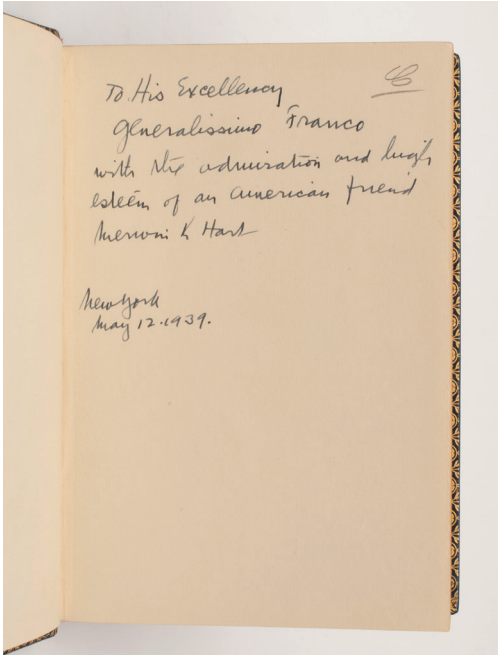 To His Excellency
Generalissimo Franco
with the admiration and high
esteem of an American friend
Merwin K Hart
New York
May 12. 1939.